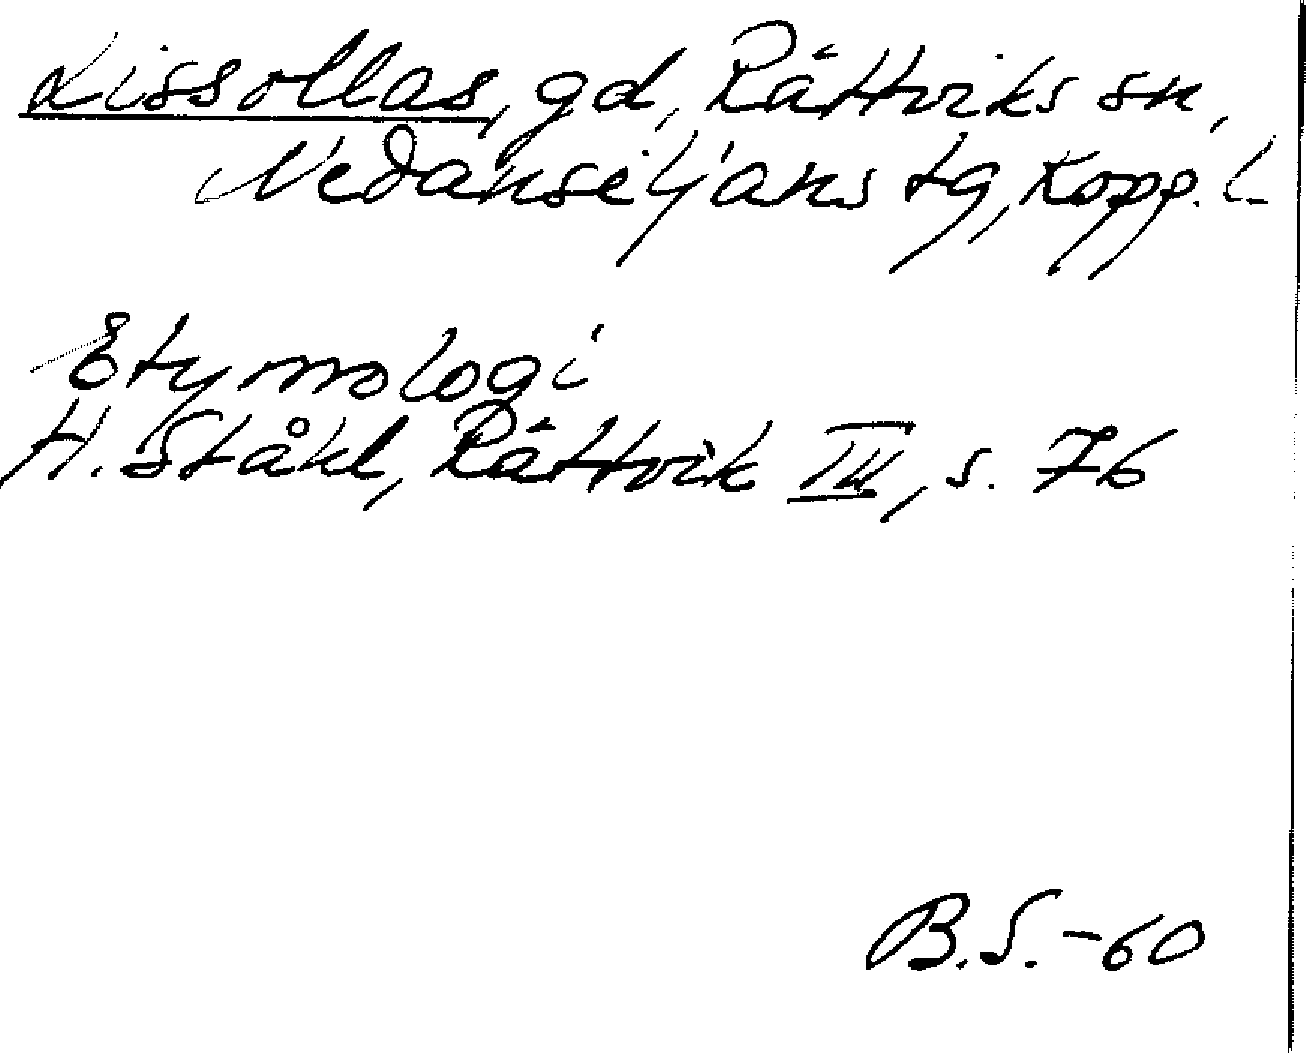 Lissollas, gd, Rättviks sn,
Nedansiljans tg, Kopp. l.
Etymologi
H. Ståhl, Rättvik III, s. 76
B.S. -60